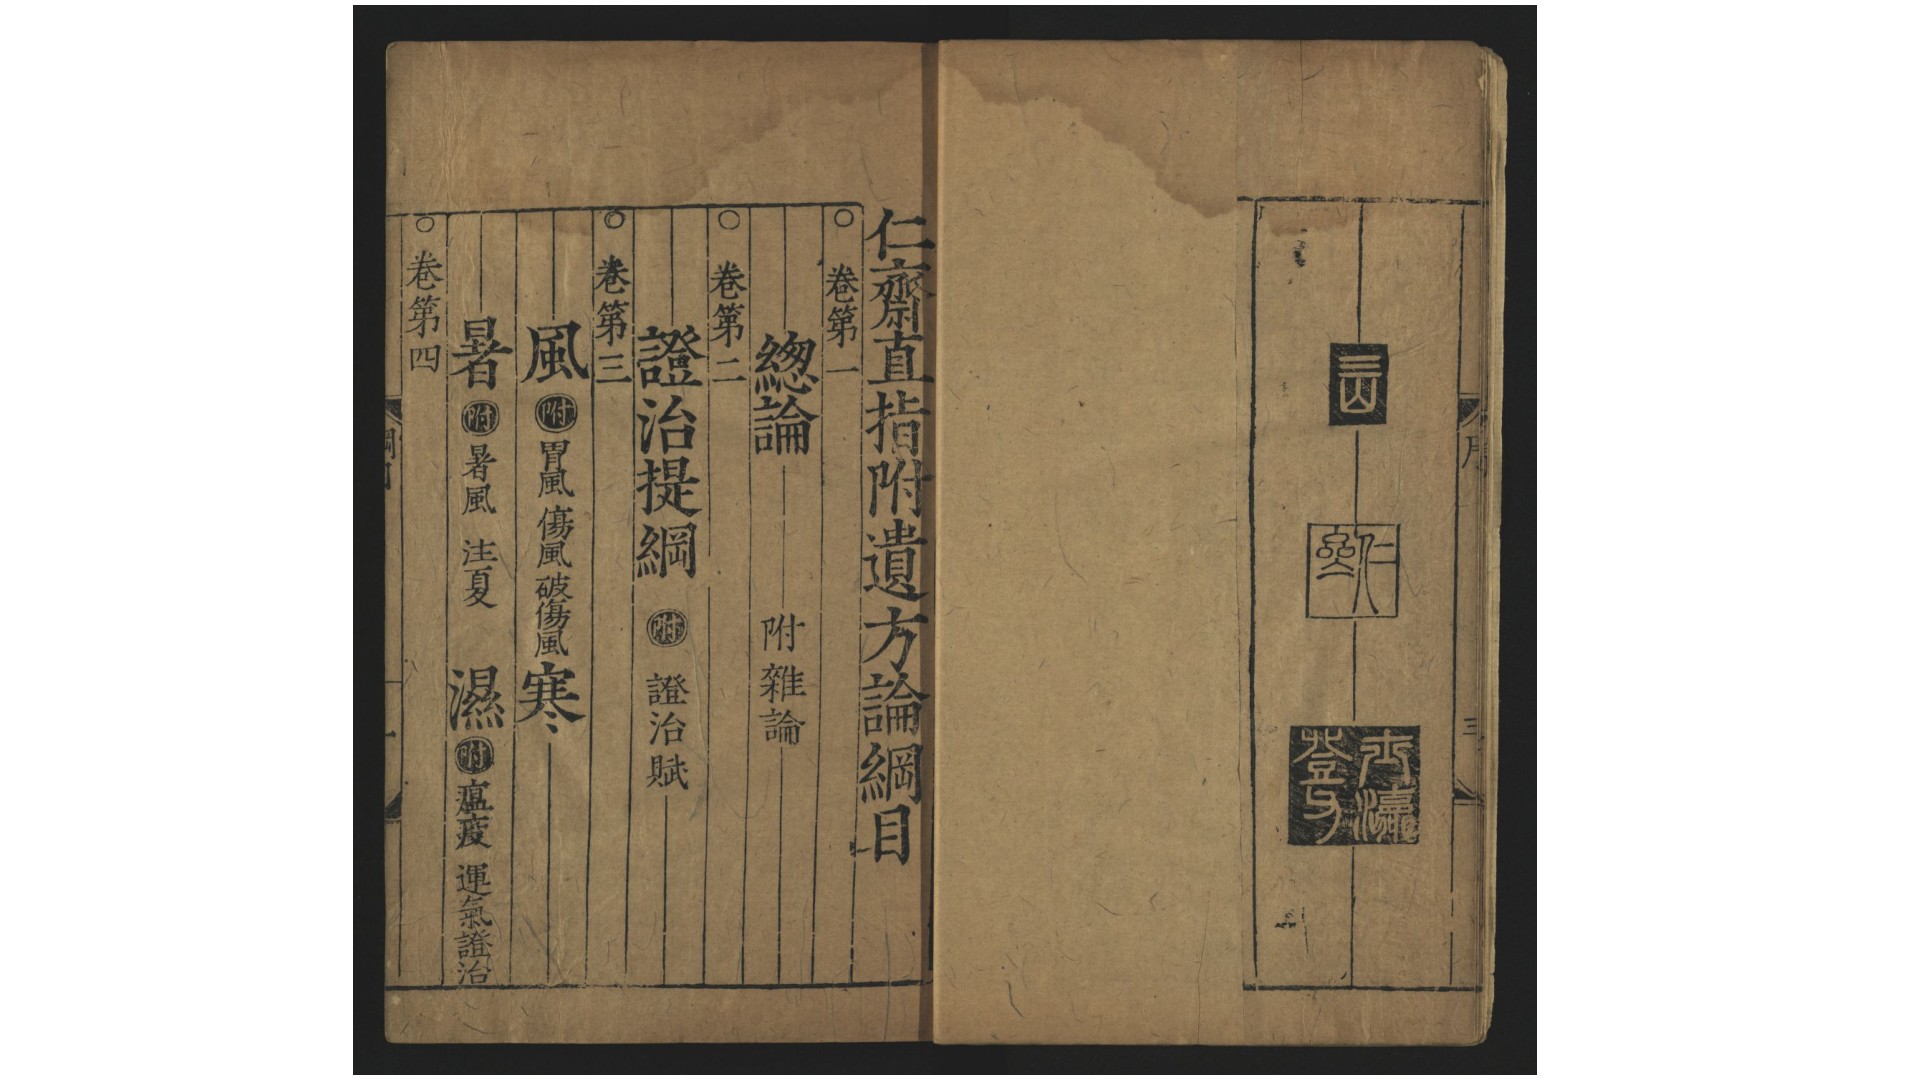 序
三
仁齋直指附遺方論綱目
○卷第一
總論 附雜論
○卷第二
證治提綱 附 證治賦
○卷第三
風 附 胃風 傷風 破傷風 寒
暑 附 暑風 注夏 濕 附 瘟疫 運氣證治
○卷第四
綱目